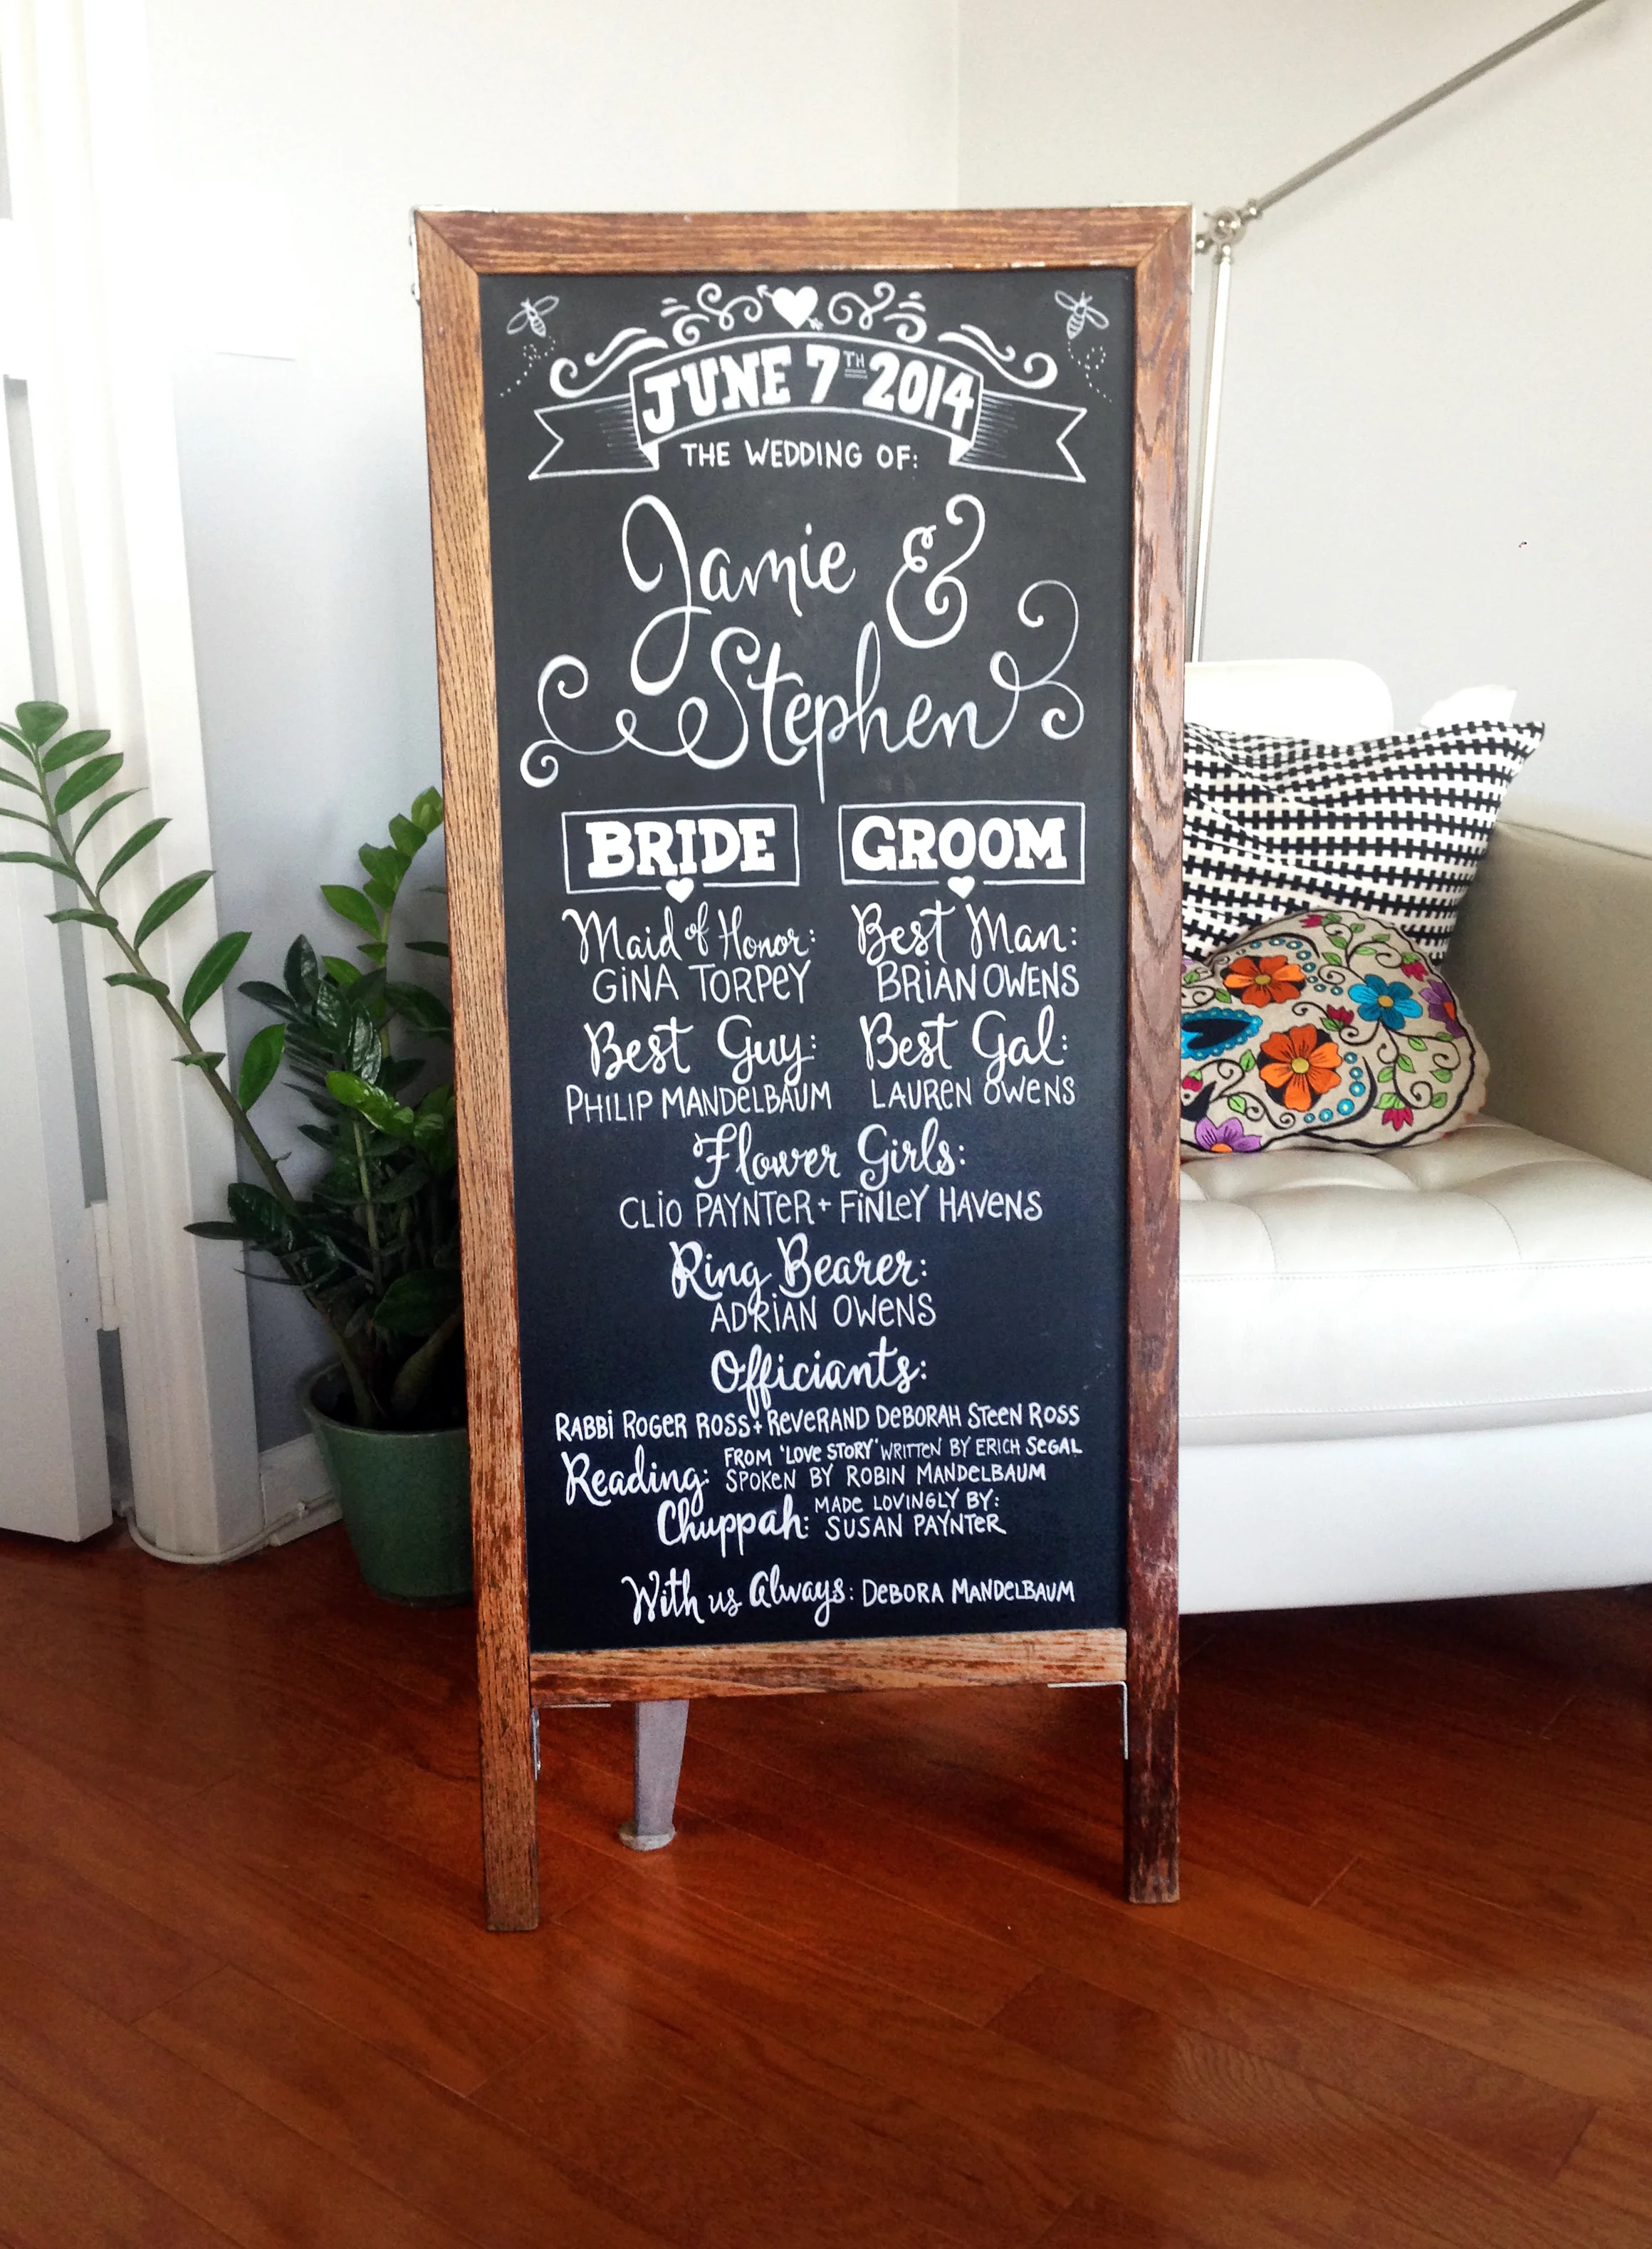 JUNE 7TH 2014
THE WEDDING OF:
Jamie &
Stephen
BRIDE
Maid of Honor:
GINA TORPEY
Best Guy:
PHILIP MANDELBAUM
GROOM
Best Man:
BRIAN OWENS
Best Gal:
LAUREN OWENS
Flower Girls:
CLIO PAYNTER + FINLEY HAVENS
Ring Bearer:
ADRIAN OWENS
Officiants:
RABBI ROGER ROSS + REVERAND DEBORAH STEEN ROSS
Reading: FROM 'LOVE STORY' WRITTEN BY ERICH SEGAL
SPOKEN BY ROBIN MANDELBAUM
Chuppah: MADE LOVINGLY BY:
SUSAN PAYNTER
With us Always: DEBORA MANDELBAUM